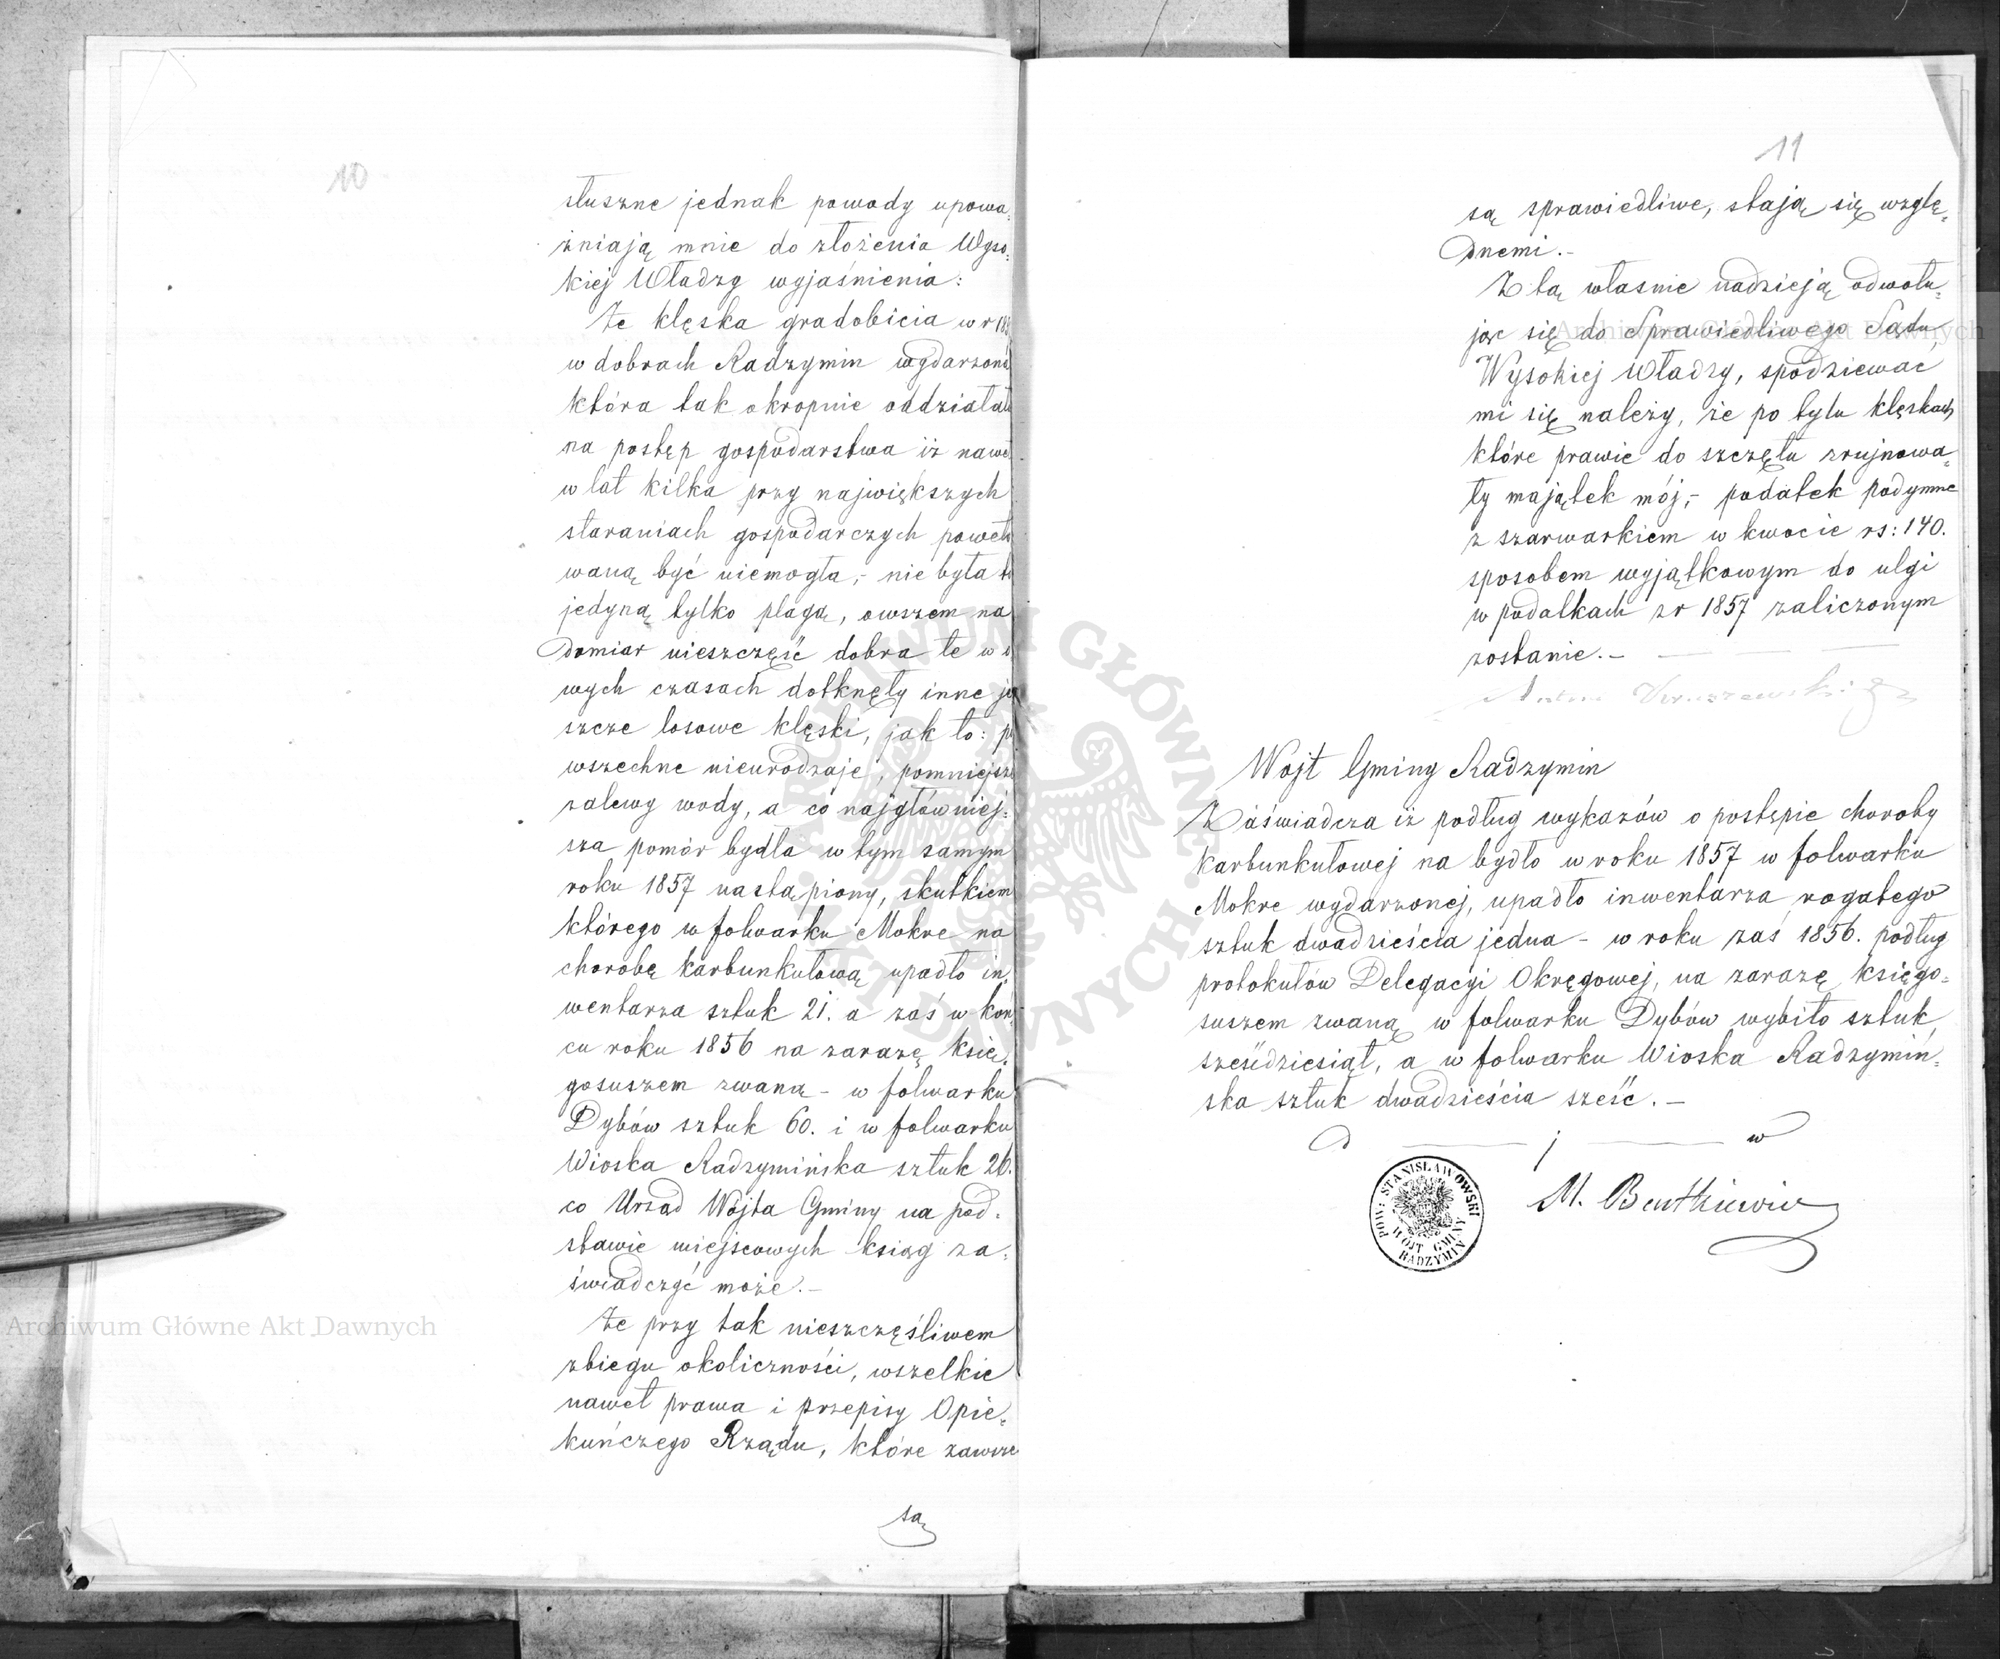 10
słuszne jednak powody upowa-
żniają mnie do złożenia Wyso-
kiej Władzy wyjaśnienia:
Że klęska gradobicia w r 185
w dobrach Radzymin wydarzona
która tak okropnie oddziałała
na postęp gospodarstwa iż nawet
w lat kilka przy największych
staraniach gospodarczych poweto
waną być niemogła, - nie była to
jedyną tylko plagą, owszem na
domiar nieszczęść dobra te w
wych czasach dotknęły inne je
szcze losowe klęski, jak to: po
wszechne nieurodzaje, pomniejsze
zalewy wody, a co najgłówniej-
sza pomór bydła w tym samym
roku 1857 nastąpiony, skutkiem
którego w folwarku Mokre na
chorobę karbunkułową upadło in-
wentarza sztuk 21. a zaś w koń-
cu roku 1856 na zarazę księ-
gosuszem zwaną - w folwarku
Dybów sztuk 60. i w folwarku
Wioska Radzymińska sztuk 26.
co Urząd Wójta Gminy na pod-
stawie miejscowych ksiąg za-
świadczyć może. -
Że przy tak nieszczęśliwem
zbiegu okoliczności, wszelkie
nawet prawa i przepisy Opie-
kuńczego Rządu, które zawsze
są
11
są sprawiedliwe, stają się wzglę-
dnemi. -
Z tą własnie nadzieją odwołu-
jąc się do Sprawiedliwego Sądu
Wysokiej Władzy, spodziewać
mi się należy, że po tylu klęskach
które prawie do szczętu zrujnowa-
ły majątek mój, - podatek podymne
z szarwarkiem w kwocie rs: 140.
sposobem wyjątkowym do ulgi
w podatkach zr 1857 zaliczonym
zostanie. -
Wojt Gminy Radzymin
Zaświadcza iż podług wykazów o postępie choroby
karbunkułowej na bydło w roku 1857 w folwarku
Mokre wydarzonej, upadło inwentarza rogatego
sztuk dwadzieścia jedna - w roku zaś 1856. podług
protokułów Delegacyi Okręgowej, na zarazę księgo-
suszem zwaną w folwarku Dybów wybito sztuk
sześdziesiąt, a w folwarku Wioska Radzymiń-
ska sztuk dwadzieścia sześć. -
M. Bentkiewicz
POW: STANISŁAWOWSKI
WÓJT GMINY
RADZYMIN
Archiwum Główne Akt Dawnych
Archiwum Główne Akt Dawnych
ARCHIWUM GŁÓWNE AKT DAWNYCH